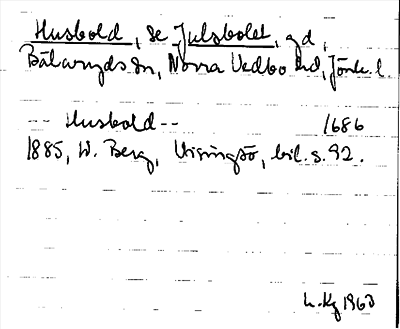 Husbold, se Julsbolet, gd,
Bälaryds sn, Norra Vedbo hd, Jönk. l.
-- Husbold -- 1686
1885, W. Berg, Visingsö, bil. s. 92.
1963